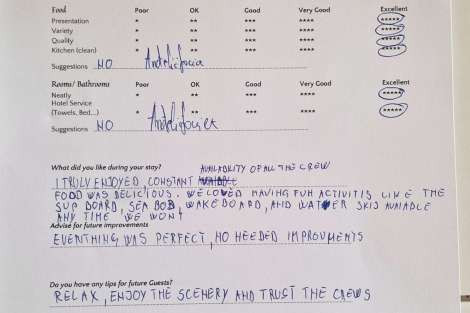 Food Poor OK Good Very Good Excellent
Presentation * ** *** **** *****
Variety * ** *** **** *****
Quality * ** *** **** *****
Kitchen (clean) * ** *** **** *****
Suggestions NO
Rooms/ Bathrooms Poor OK Good Very Good Excellent
Neatly * ** *** **** *****
Hotel Service
(Towels, Bed...) * ** *** **** *****
Suggestions NO
What did you like during your stay? AVAILABILITY OF ALL THE CREW
I TRULY ENJOYED, CONSTANT
FOOD WAS DELICIOUS. WE LOVED HAVING FUN ACTIVITIS LIKE THE
SUP BOARD, SEA BOB, WAKEBOARD, AND WATER SKIS AVAIABLE
ANY TIME WE WONT
Advise for future improvements
EVENTHING WAS PERFECT, NO NEEDED IMPROVMENTS
Do you have any tips for future Guests?
RELAX, ENJOY THE SCENERY AND TRUST THE CREWS